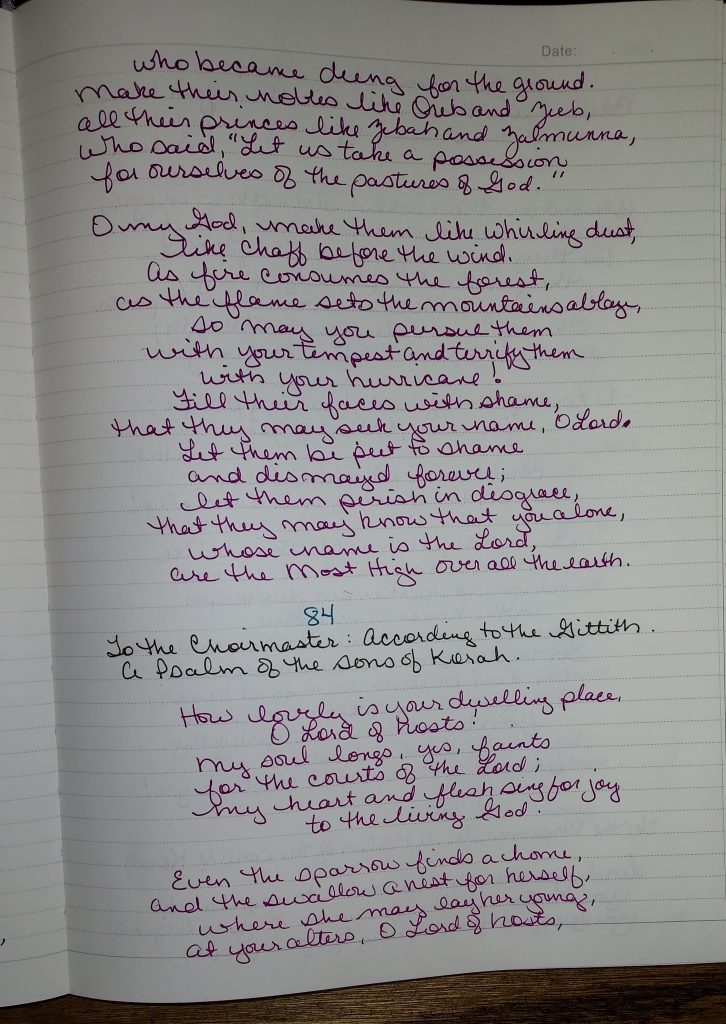 Date:
who became dung for the ground.
Make their nobles like Oreb and Zeeb,
all their princes like Zebah and Zalmunna,
who said, "Let us take a possession
for ourselves of the pastures of God."
O my God, make them like whirling dust,
like chaff before the wind.
As fire consumes the forest,
as the flame sets the mountains ablaze,
so may you persue them
with your tempest and terrify them
with your hurricane!
Fill their faces with shame,
that they may seek your name, O Lord.
Let them be put to shame
and dismayd forever;
let them perish in disgrace,
that they may know that you alone,
whose name is the Lord,
are the Most High over all the earth.
84
To the Choirmaster: According to the Gittith.
A Psalm of the sons of Korah.
How lovely is your dwelling place,
O Lord of hosts!
My soul longs, yes, faints
for the courts of the Lord;
my heart and flesh sing for joy
to the living God.
Even the sparrow finds a home,
and the swallow a nest for herself,
where she may lay her young,
at your alters, O Lord of hosts,